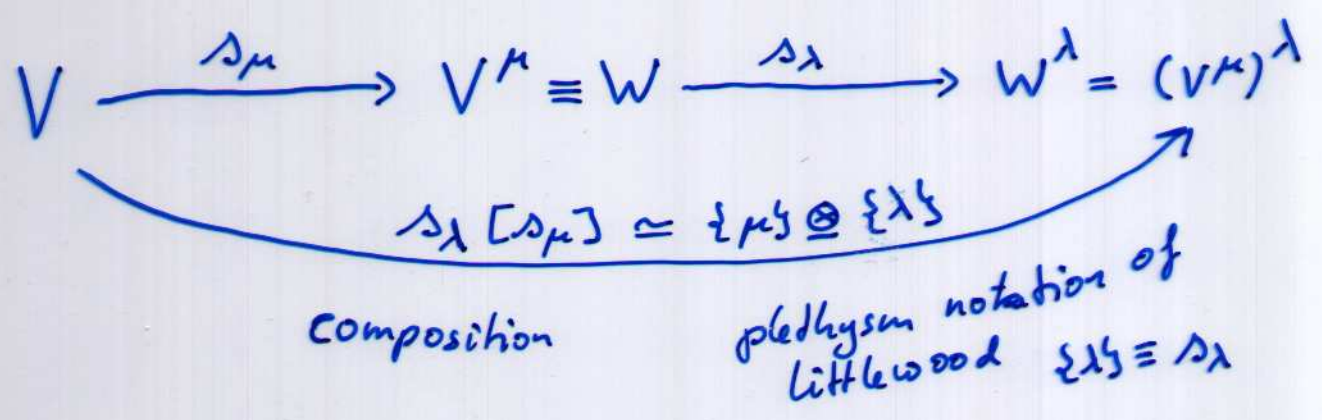 V sμ→ V^μ ≡ W sλ→ W^λ = (V^μ)^λ
sλ [sμ] ≃ {μ} ⊗ {λ}
composition
plethysm notation of
littlewood {λ} ≡ sλ